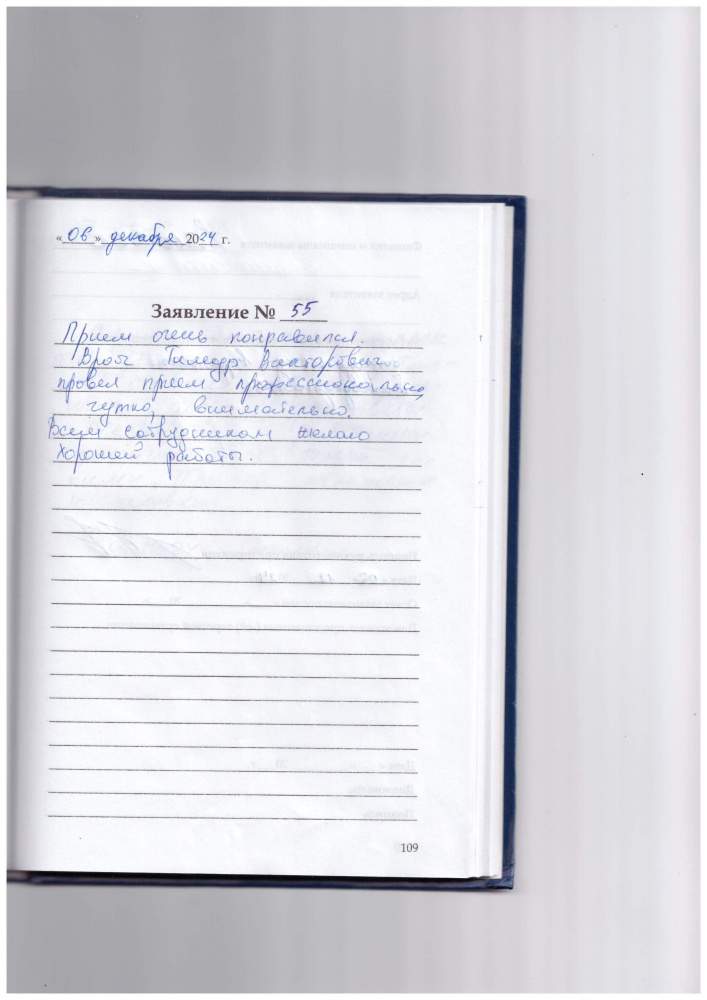 «06» декабря 2024 г.
Заявление № 55
Прием очень понравился.
Врач Тимур Викторович
провел прием профессионально,
чутко, внимательно.
Всем сотрудникам желаю
хорошей работы.
109